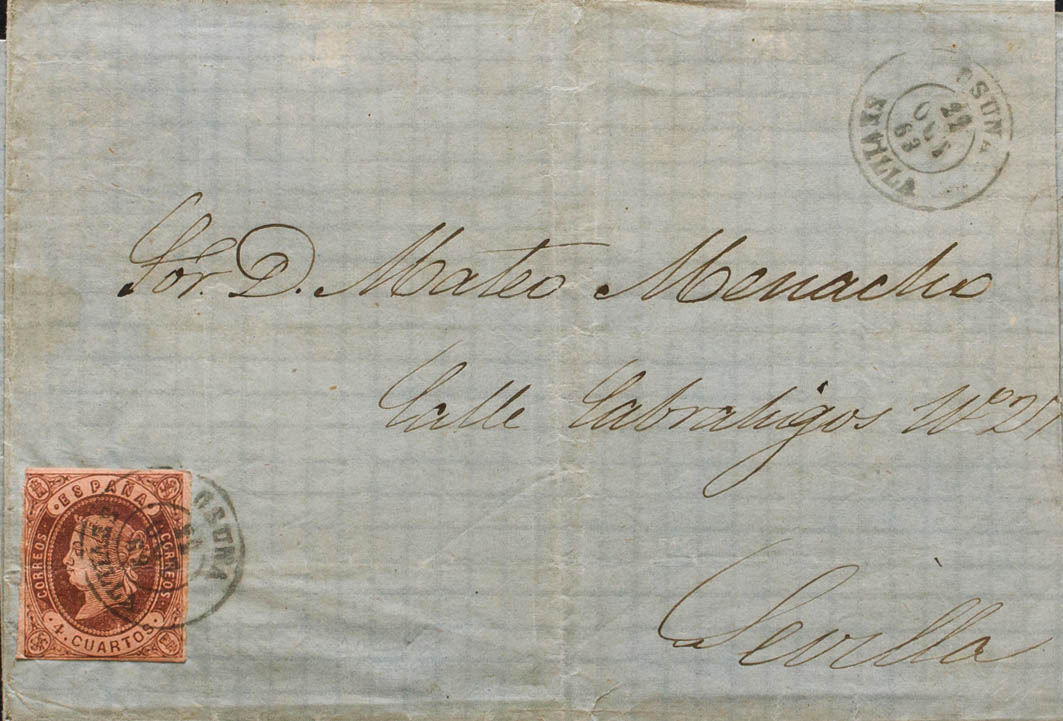 OSUNA
22
OCT
63
SEVILLA
Sor. D. Mateo Menacho
Calle Cabrahigos Nº 27
Sevilla
ESPAÑA
CORREOS
CORREOS
4. CUARTOS
OSUNA
SEVILLA